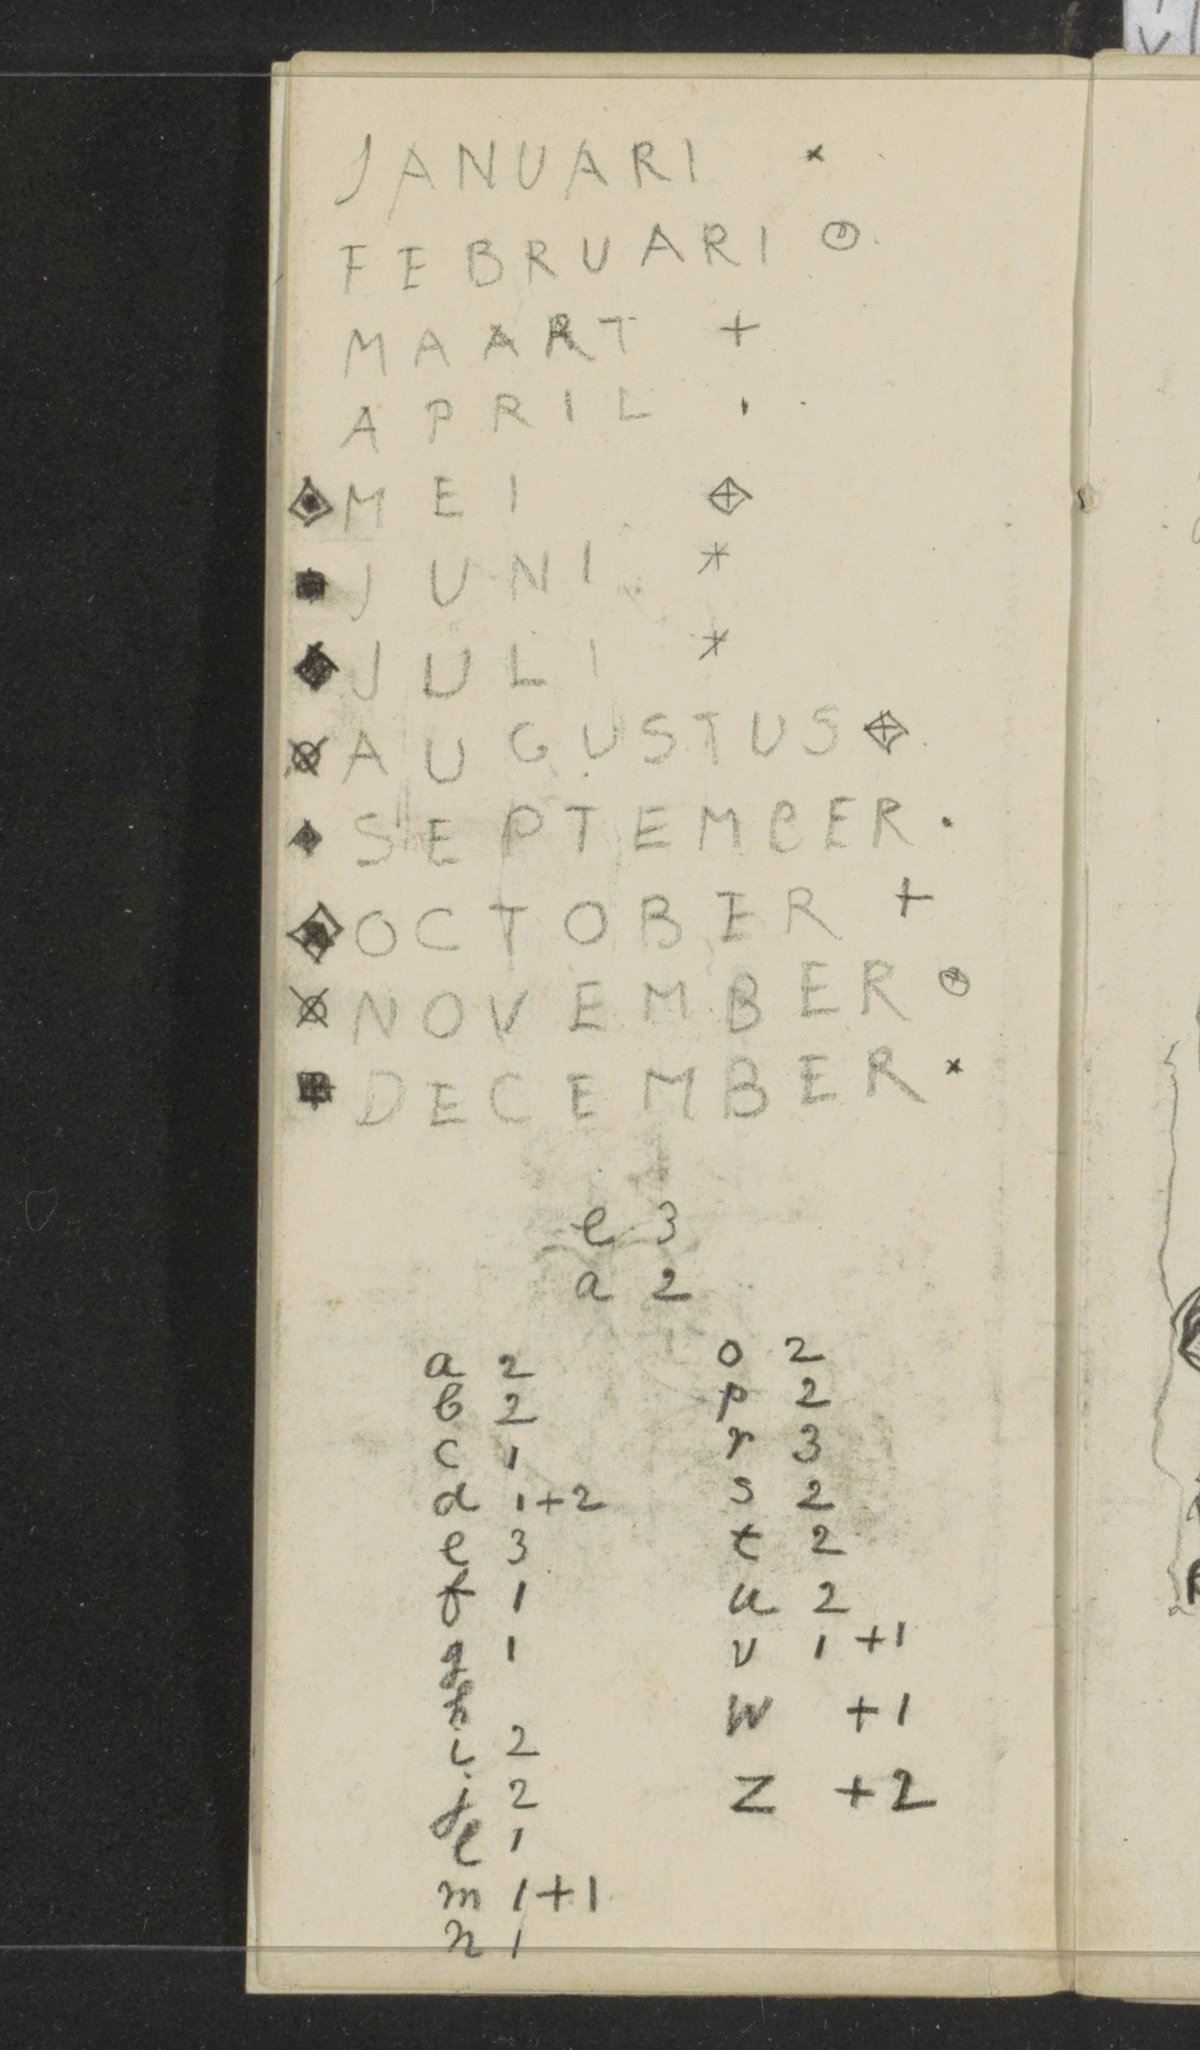 JANUARI ×
FEBRUARI
MAART +
APRIL
MEI
JUNI *
JULI *
AUGUSTUS
SEPTEMBER .
OCTOBER +
NOVEMBER
DECEMBER ×
e 3
a 2
a 2
b 2
c 1
d 1+2
e 3
f 1
g 1
h
i 2
j 2
l 1
m 1+1
n 1
o 2
p 2
r 3
s 2
t 2
u 2
v 1+1
w +1
z +2